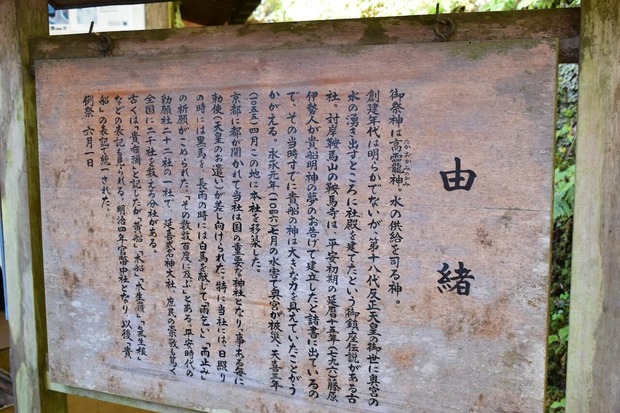 由緒
御祭神は高龗神。水の供給を司る神。
たかおかみのかみ
創建年代は明らかでないが、第十八代反正天皇の御世に奥宮の
水の湧き出すところに社殿を建てたという御鎮座伝説がある古
社。対岸鞍馬山の鞍馬寺は、平安初期の延暦十五年(七九六)藤原
伊勢人が貴船明神の夢のお告げで建立したと諸書に出ているの
で、その当時すでに貴船の神は大きな力を具えていたことがう
かがえる。永承元年(一〇四六)七月の水害で奥宮が被災、天喜三年
(一〇五五)四月この地に本社を移築した。
京都に都が開かれて当社は国の重要な神社となり、事ある毎に
勅使(天皇のお遣い)が差し向けられた。特に当社には、日照り
の時には黒馬を、長雨の時には白馬を献じて「雨乞い」「雨止み」
の祈願がこめられた。「その数数百度に及ぶ」とある。平安時代の
勅願社二十二社の一社で、延喜式名神大社。庶民の崇敬も篤く
全国に二千社を数える分社がある。
古くは「貴布禰」と記したが「黄船」「木船」「木生嶺」「気生根」
などの表記も見られる。明治四年官幣中社となり、以後「貴
船」の表記で統一された。
例祭 六月一日